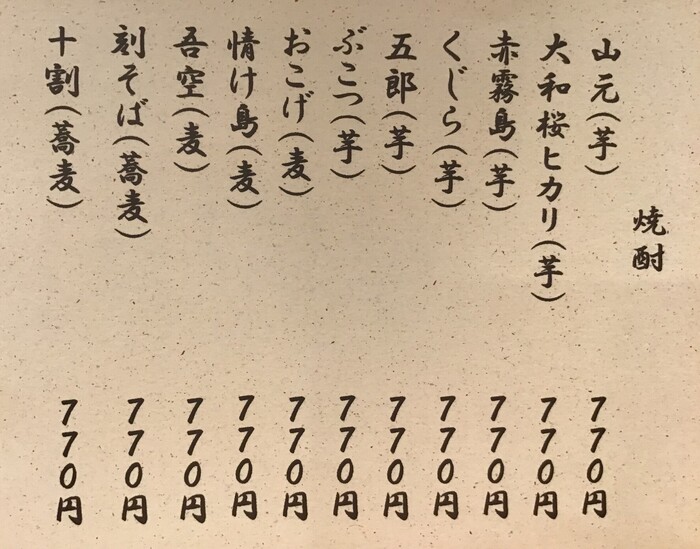 焼酎
山元(芋) 770円
大和桜ヒカリ(芋) 770円
赤霧島(芋) 770円
くじら(芋) 770円
五郎(芋) 770円
ぶこつ(芋) 770円
おこげ(麦) 770円
情け島(麦) 770円
吾空(麦) 770円
刻そば(蕎麦) 770円
十割(蕎麦) 770円